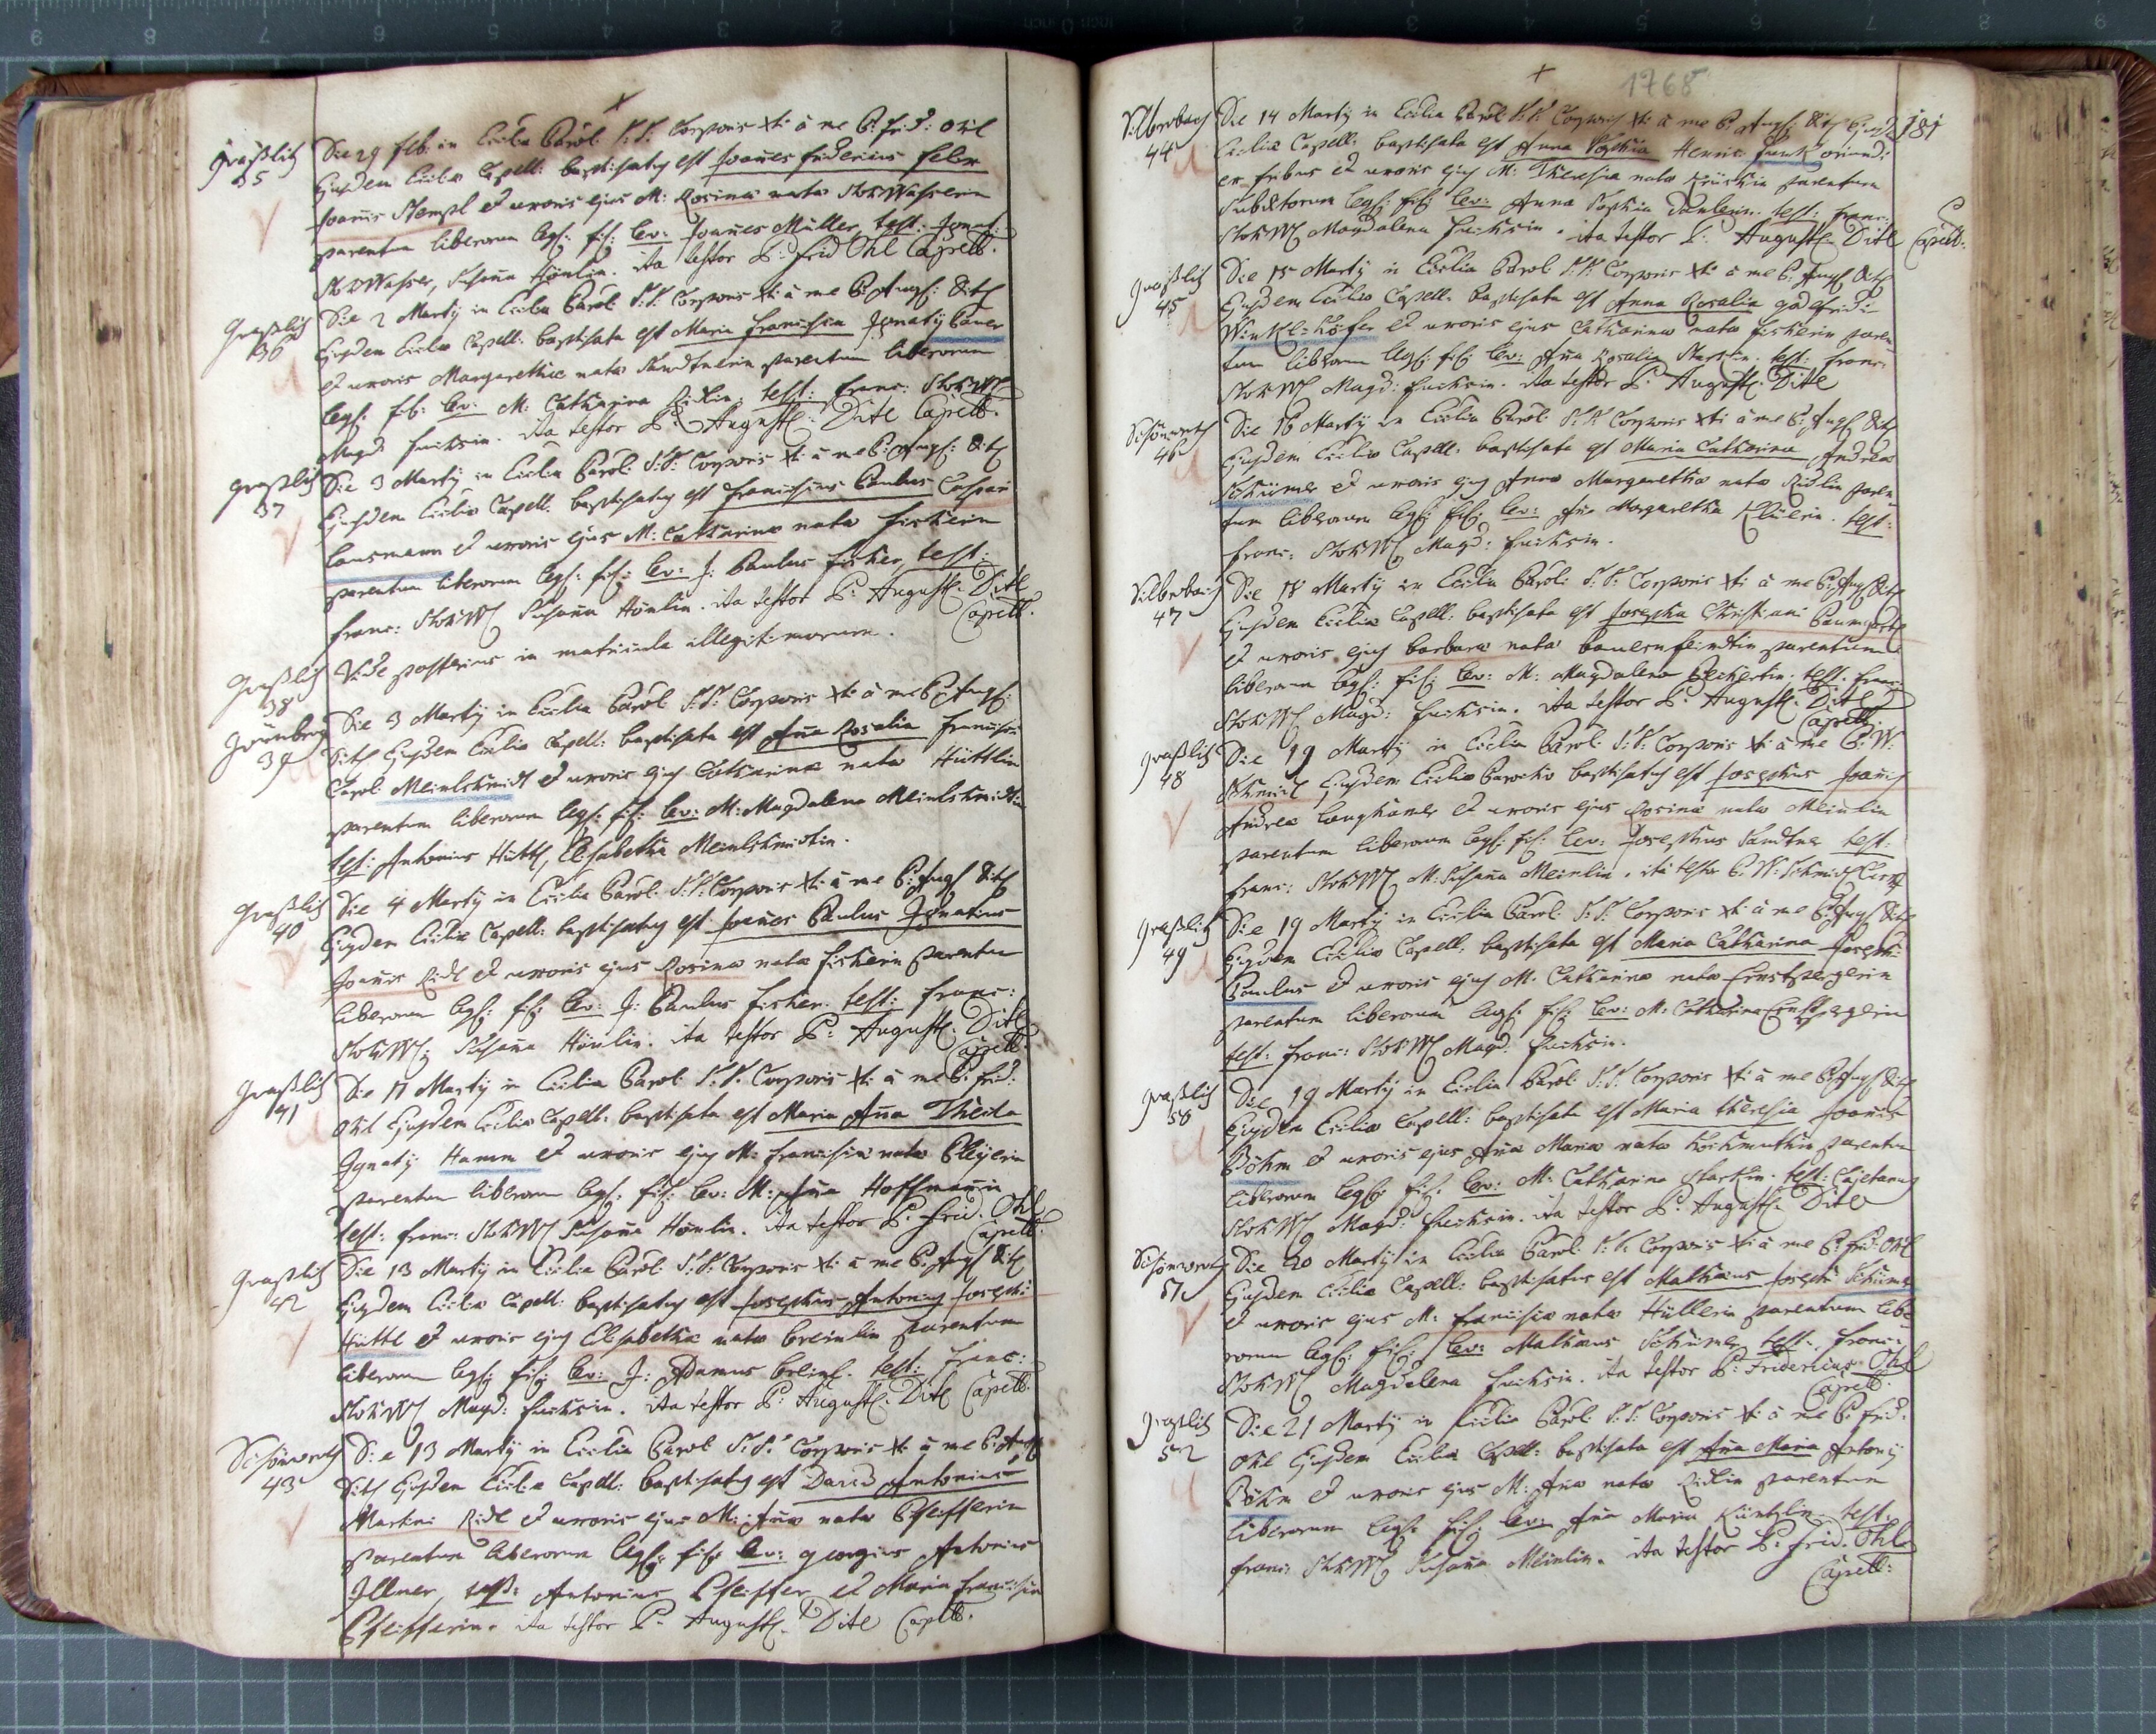 Graßlitz
35
Die 29 Feb: in Ecclia Paroł: S.S. Corporis Xti à me P: Frid: Ohl
Ejusdem Eccliæ Capell: baptisatus est Joannes Fridericus Felix
Joannis Stempl et uxoris ejus M: Rosinæ natæ StokWasserin
parentum liberorum legs: fil: lev: Joannes Müller, test: Ignat:
StokWasser, Susaña Hönlin. ita testor P: Frid Ohl Capell:
Graßlitz
36
Die 2 Martÿ in Ecclia Paroł: S.S. Corporis Xti à me P: Augs: Ditl
Ejusdem Eccliæ Capell: baptisata est Maria Francisca Ignatÿ Bauer
et uxoris Margarethæ natæ Sandtnerin parentum liberorum
legs: fil: lev: M: Catharina Ridlin, test: Franc: StokW
Magd: Fuchsin. ita testor P: Augusts: Ditl Capell:
Graßlitz
37
Die 3 Martÿ in Ecclia Paroł: S.S. Corporis Xti à me P: Augs: Ditl
Ejusdem Eccliæ Capell: baptisatus est Franciscus Paulus Caspari
Lausmann et uxoris ejus M: Catharinæ natæ Fischerin
parentum liberorum legs: fil: lev: J: Paulus Fischer, test:
Franc: StokW Susaña Hönlin. ita testor P: Augusts: Ditl
Capell:
Graßlitz
38
Vide posterius in matricula illegitimorum.
Grünberg
39
Die 3 Martÿ in Ecclia Paroł: S.S. Corporis Xti à me P: Augs:
Ditl Ejusdem Eccliæ Capell: baptisata est Aña Rosalia Francisci
Caroł: Meinlschmidt et uxoris ejus Catharinæ natæ Hüttlin
parentum liberorum legs: fil: lev: M: Magdalena Meinlschmidtin
test: Antonius Hüttl, Elisabetha Meinlschmidtin.
Graßlitz
40
Die 4 Martÿ in Ecclia Paroł: S.S. Corporis Xti à me P: Augs Ditl
Ejusdem Eccliæ Capell: baptisatus est Joañes Paulus Ignatius
Joañis Ridl et uxoris ejus Rosinæ natæ Fischerin parentum
liberorum legs: fil: lev: J: Paulus Fischer. test: Franc:
StokW Susaña Hönlin. ita testor P: Augusts: Ditl
Capell:
Graßlitz
41
Die 11 Martÿ in Ecclia Paroł: S.S. Corporis Xti à me P: Frid:
Ohl Ejusdem Eccliæ Capell: baptisata est Maria Aña Thecla
Ignatÿ Hamm et uxoris ejus M: Franciscæ natæ Pleÿerin
parentum liberorum legs: fil: lev: M: Aña Hoffmañin
test: Franc: StokW Susaña Hönlin. ita testor P: Frid: Ohl
Capell:
Graßlitz
42
Die 13 Martÿ in Ecclia Paroł: S.S. Corporis Xti à me P: Augs Ditl
Ejusdem Eccliæ Capell: baptisatus est Josephus Antonius Josephi
Hüttl et uxoris ejus Elisabethæ natæ Breinlin parentum
liberorum legs: fil: lev: J: Adamus Breinl. test: Franc:
StokW Magd: Fuchsin. ita testor P: Augusts: Ditl Capell:
Schönwerth
43
Die 13 Martÿ in Ecclia Paroł: S.S. Corporis Xti à me P: Augs
Ditl Ejusdem Eccliæ Capell: baptisatus est David Antonius
Martini Ridl et uxoris ejus M: Aña natæ Pfeifferin
parentum liberorum legs: fil: lev: Georgius Antonius
Illner, test: Antonius Pfeiffer et Maria Francisca
Pfeifferin. ita testor P: Augusts: Ditl Capell:
1768
181
Silberbach
44
Die 14 Martÿ in Ecclia Paroł: S.S. Corporis Xti à me P: Augs: Ditl Ejusd:
Eccliæ Capell: baptisata est Anna Sophia Henric: Funk oriundi
ex et uxoris ejus M: Theresiæ natæ parentum
subditorum legs: fil: lev: Anna Sophia test: Franc:
StokW Magdalena Fuchsin. ita testor P: Augusts: Ditl Capell:
Graßlitz
45
Die 15 Martÿ in Ecclia Paroł: S.S. Corporis Xti à me P: Augs Ditl
Ejusdem Eccliæ Capell: baptisata est Anna Rosalia Godefridi
Winkelhöfer et uxoris ejus Catharinæ natæ Fischerin paren
tum liberorum legs: fil: lev: Aña Rosalia test: Franc:
StokW Magd: Fuchsin. ita testor P: Augusts: Ditl
Schönwerth
46
Die 16 Martÿ in Ecclia Paroł: S.S. Corporis Xti à me P: Augs Ditl
Ejusdem Eccliæ Capell: baptisata est Maria Catharina Andreæ
Schürner et uxoris ejus Annæ Margarethæ natæ Ridlin paren
tum liberorum legs: fil: lev: Aña Margaretha test:
Franc: StokW Magd: Fuchsin.
Silberbach
47
Die 18 Martÿ in Ecclia Paroł: S.S. Corporis Xti à me P: Augs Ditl
Ejusdem Eccliæ Capell: baptisata est Josepha Christiani Baumgartl
et uxoris ejus Barbaræ natæ Bauernfeindtin parentum
liberorum legs: fil: lev: M: Magdalena Peckertin. test: Franc:
StokW Magd: Fuchsin. ita testor P: Augusts: Ditl
Capell:
Graßlitz
48
Die 19 Martÿ in Ecclia Paroł: S.S. Corporis Xti à me P: W:
Schmidt Ejusdem Eccliæ Parocho baptisatus est Josephus Joañis
Andreæ Langhamer et uxoris ejus Rosinæ natæ Meinlin
parentum liberorum legs: fil: lev: Josephus Sandtner test:
Franc: StokW M: Susaña Meinlin. ita testor P: W: Schmidt
Graßlitz
49
Die 19 Martÿ in Ecclia Paroł: S.S. Corporis Xti à me P: Augs Ditl
Ejusdem Eccliæ Capell: baptisata est Maria Catharina Josephi
Paulus et uxoris ejus M. Catharinæ natæ Ernstpergerin
parentum liberorum legs: fil: lev: M: Catharina Ernstpergerin
test: Franc: StokW Magd: Fuchsin.
Graßlitz
50
Die 19 Martÿ in Ecclia Paroł: S.S. Corporis Xti à me P: Augs Ditl
Ejusdem Eccliæ Capell: baptisata est Maria Theresia Joañis
Böhm et uxoris ejus Aña Mariæ natæ parentum
liberorum legs: fil: lev: M: Catharina Starkin. test: Cajetanus
StokW Magd: Fuchsin. ita testor P: Augusts: Ditl
Schönwerth
51
Die 20 Martÿ in Ecclia Paroł: S.S. Corporis Xti à me P: Frid: Ohl
Ejusdem Eccliæ Capell: baptisatus est Mathæus Josephi Schürner
et uxoris ejus M: Franciscæ natæ Hüllerin parentum libe
rorum legs: fil: lev: Mathæus Schürner, test: Franc:
StokW Magdalena Fuchsin. ita testor P: Fridericus Ohl
Capell:
Graßlitz
52
Die 21 Martÿ in Ecclia Paroł: S.S. Corporis Xti à me P: Frid:
Ohl Ejusdem Eccliæ Capell: baptisata est Aña Maria Antonÿ
Böhm et uxoris ejus M: Aña natæ Ridlin parentum
liberorum legs: fil: lev: Aña Maria Küntzlin. test:
Franc: StokW Susaña Meinlin. ita testor P: Frid: Ohl
Capell: